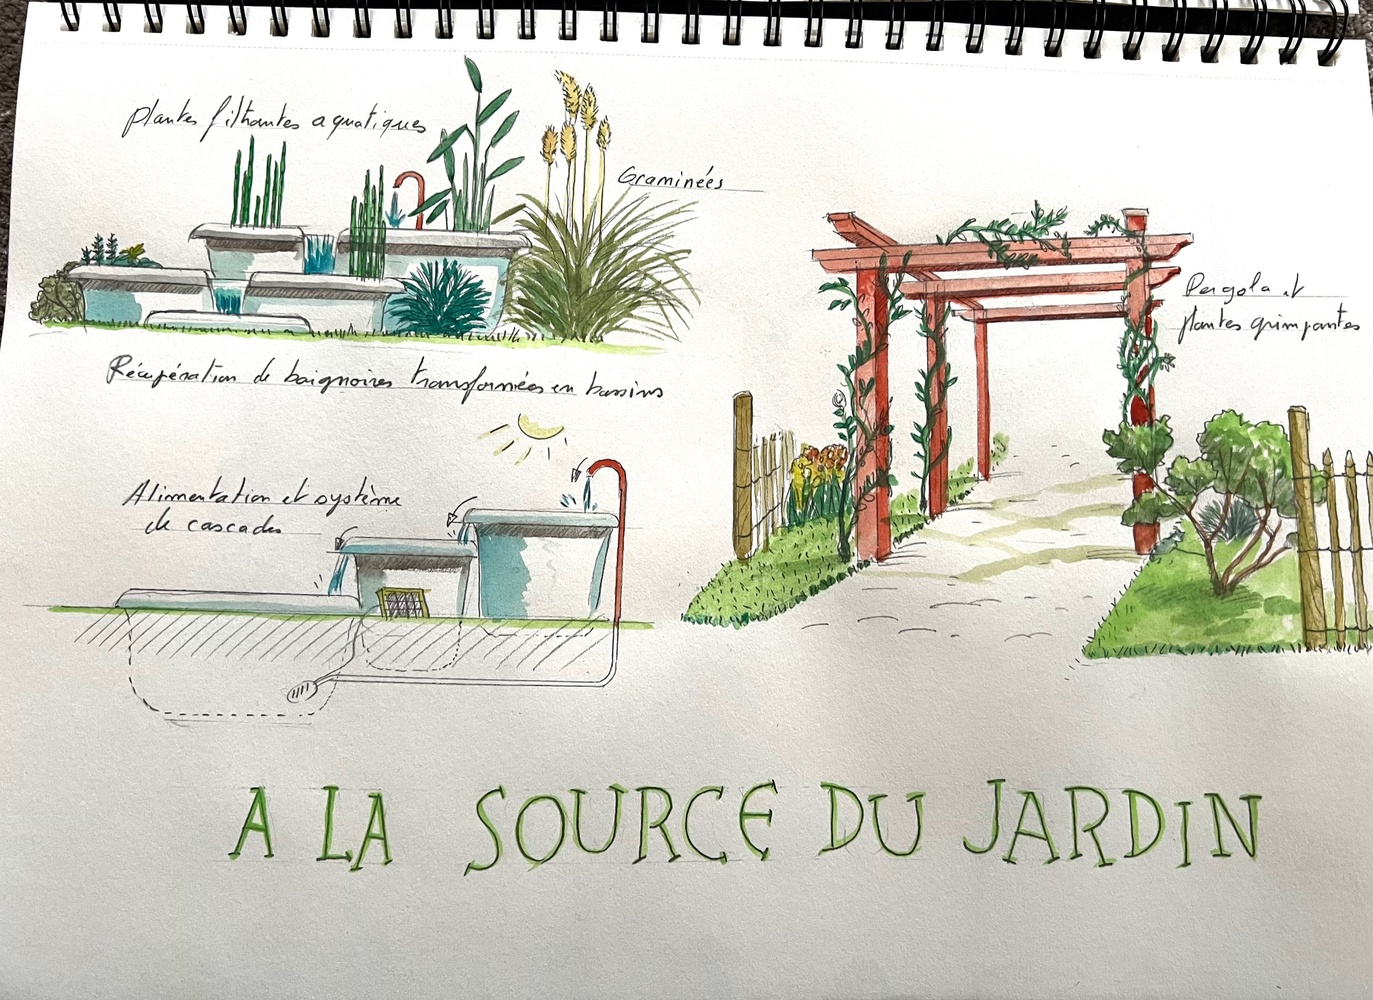 plantes filtrantes aquatiques
Graminées
Pergola et
plantes grimpantes
Récupération de baignoires transformées en bassins
Alimentation et système
de cascades
A LA SOURCE DU JARDIN